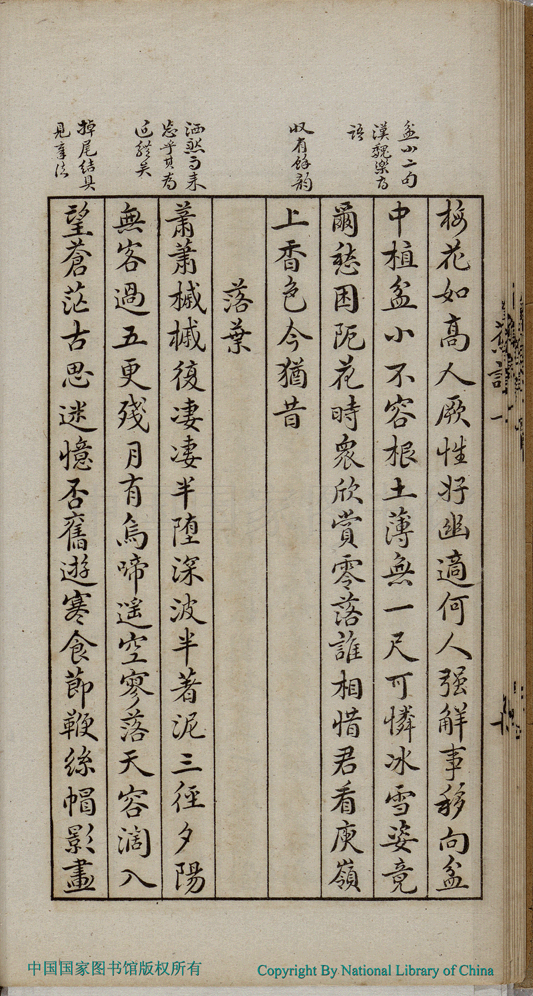 盆小二句
漢魏樂府
語
収有餘韵
洒然而来
忽乎其为
近體矣
掉尾結具
見筆法
梅花如高人厥性好幽適何人强解事移向盆
中植盆小不容根土薄無一尺可憐冰雪姿竟
爾愁困阨花時衆欣賞零落誰相惜君看庾嶺
上香色今猶昔
落葉
蕭蕭槭槭復淒淒半墮深波半著泥三徑夕陽
無客過五更殘月有烏啼遥空寥落天容濶入
望蒼茫古思迷憶否舊遊寒食節鞭絲帽影畫
中国国家图书馆版权所有
Copyright By National Library of China